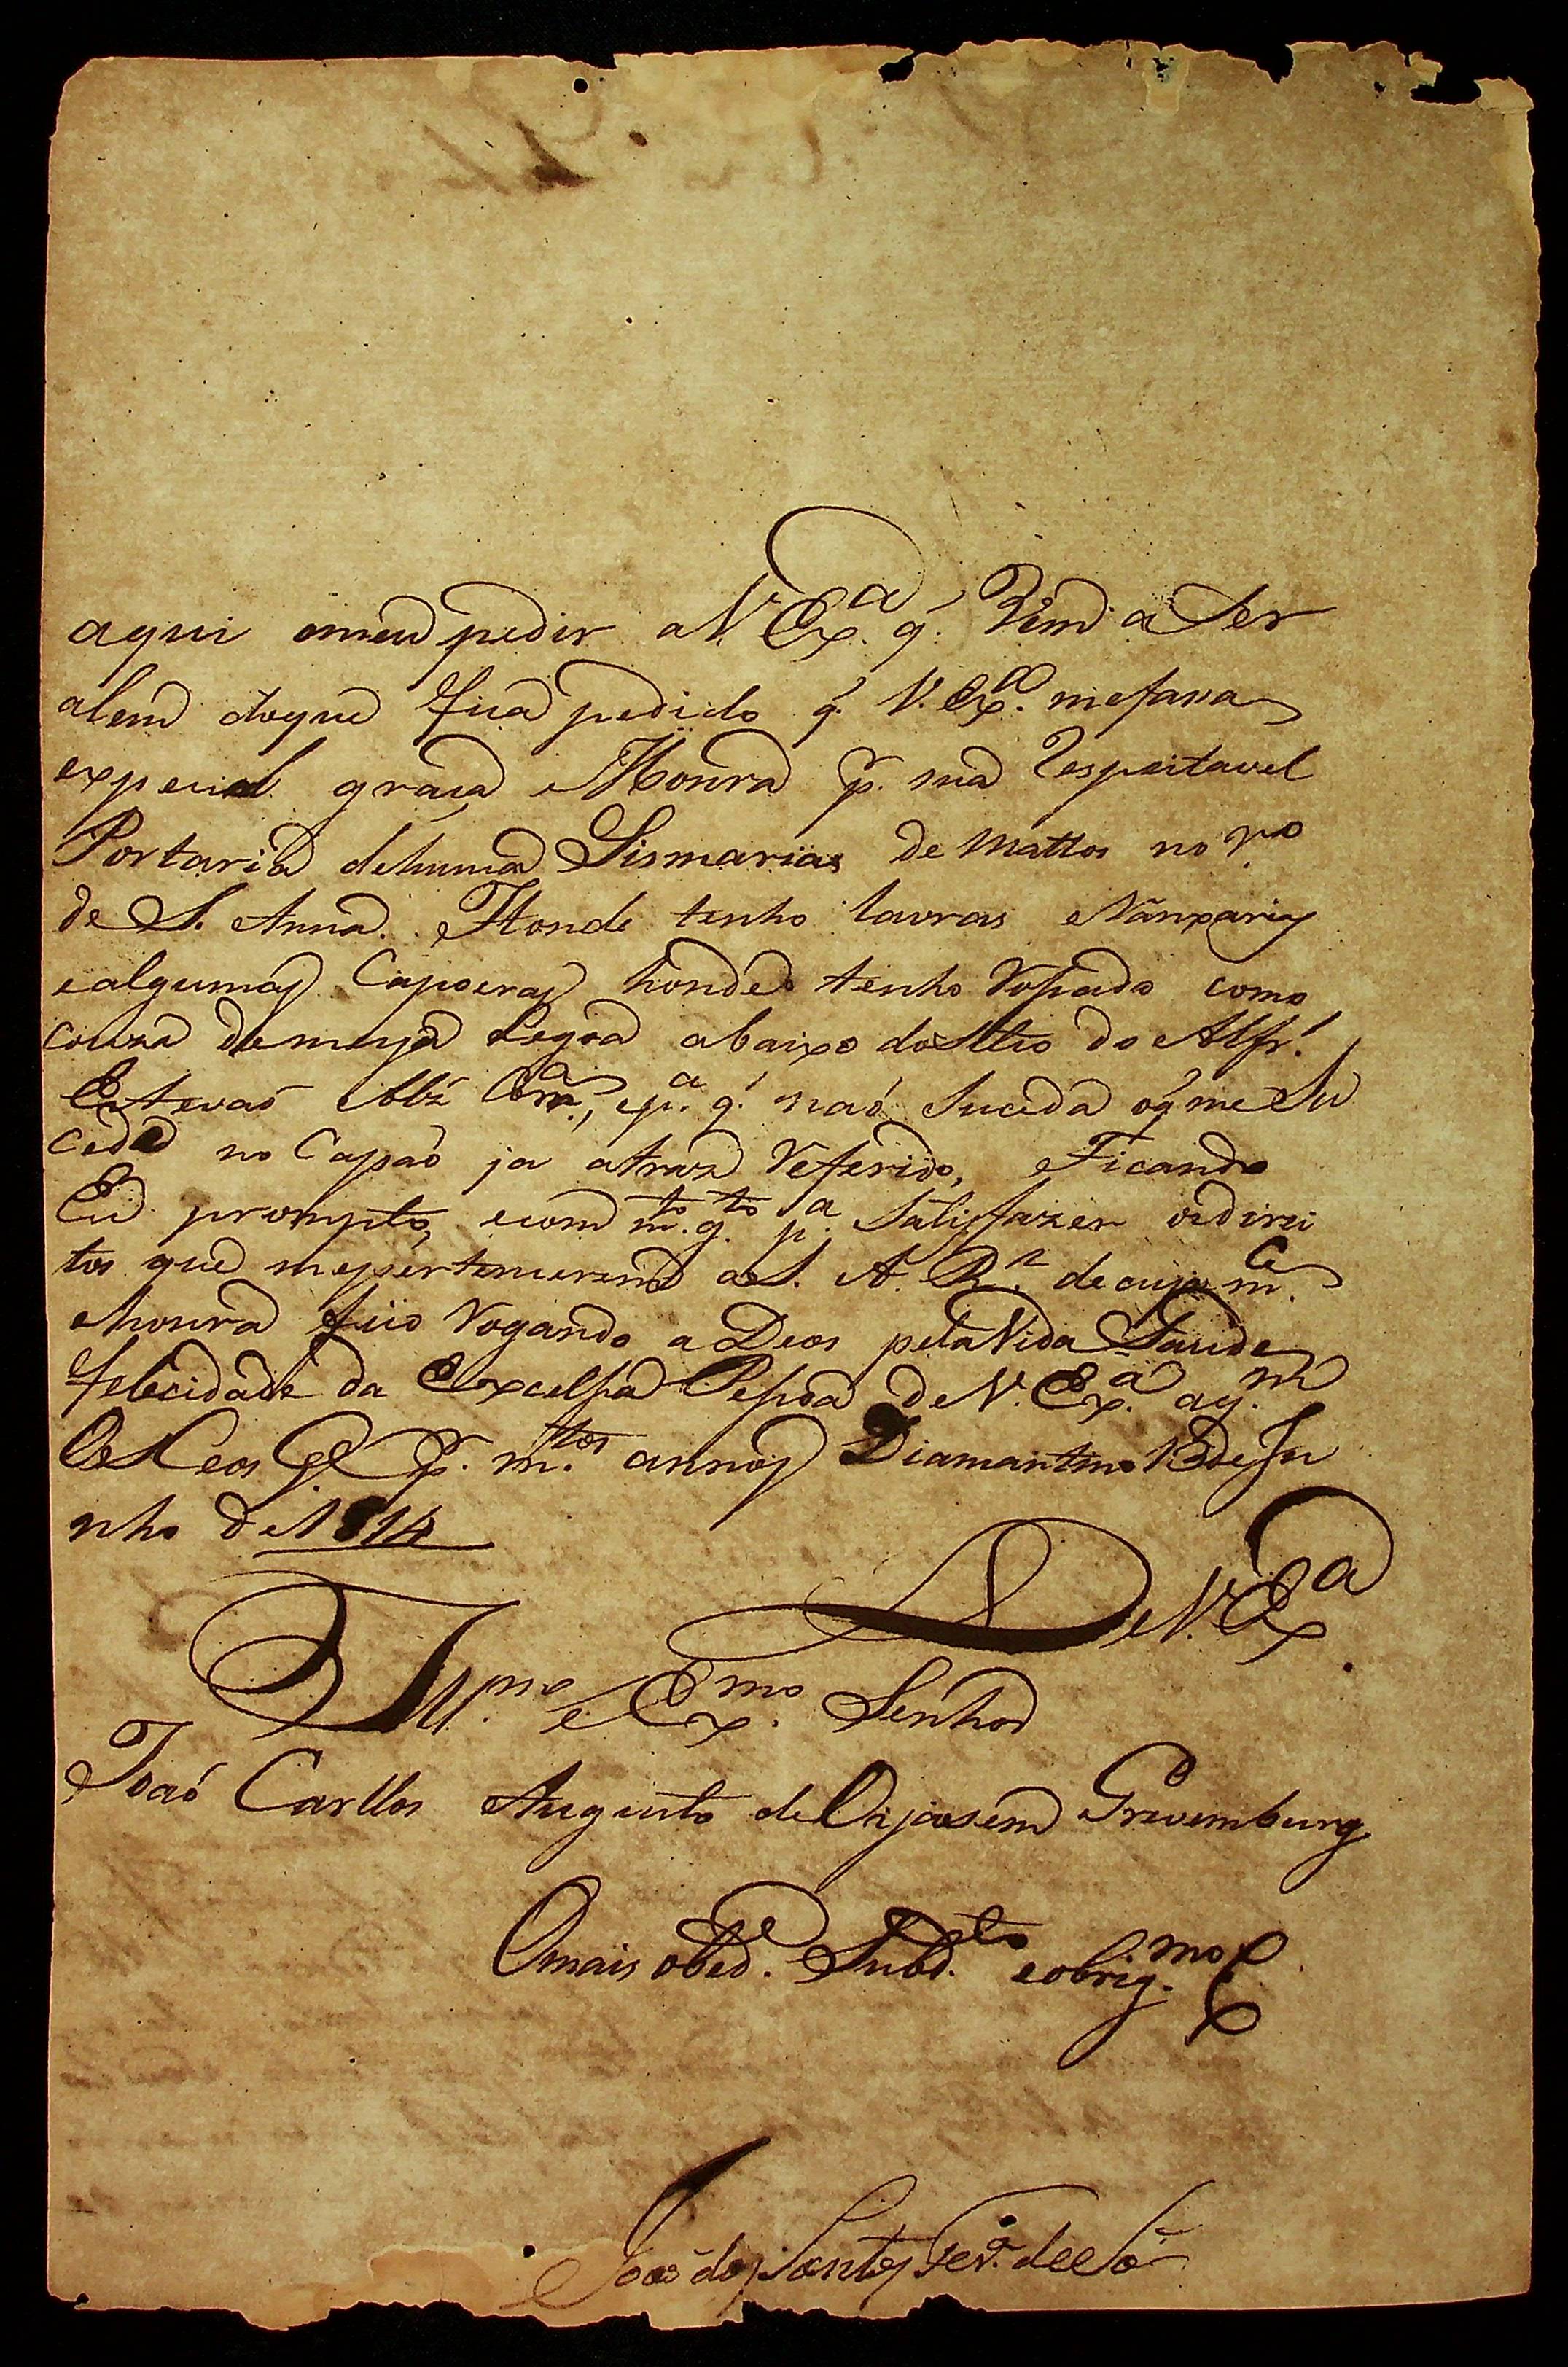 aqui omeu pedir a V. Ex.ª q. Vem a Ser
alem doque fica pedido q. V. Ex.ª mefassa
expecial graça eHonra p. sua Respeitavel
Portaria dehuma Sismarias de Mattos no r.º
de S. Anna. Honde tenho lavras
ealgumas Capoeras honde tenho Rossado como
couza demeya Legoa abaixo doSitio do Alfr.
Estevaó Alz Corr.ª, ep.ª q. naó Suceda oq. me Su
cedeo no Capaó ja atraz Referido, eFicando
Eu prompto, ecom m.to g.to p.ª Satisfazer odirei
tos que mepertencerem aS. A. R. decuja m.ce
ehonra fico Rogando a Deos pelaVida Saude
felecidade da Excelssa Pessoa deV. Ex.ª aq.m
OsCeos G.e P. m.tos annos Diamantino 13 deJu
nho de 1814
DeV. Ex.ª
Ill.mo e Ex.mo Senhor
Joaó Carllos Augusto deOijasem Grevemburg
Omais obed.e Subd.to eobrig.mo
Joaõ dos Santos Ferr.ª deSá